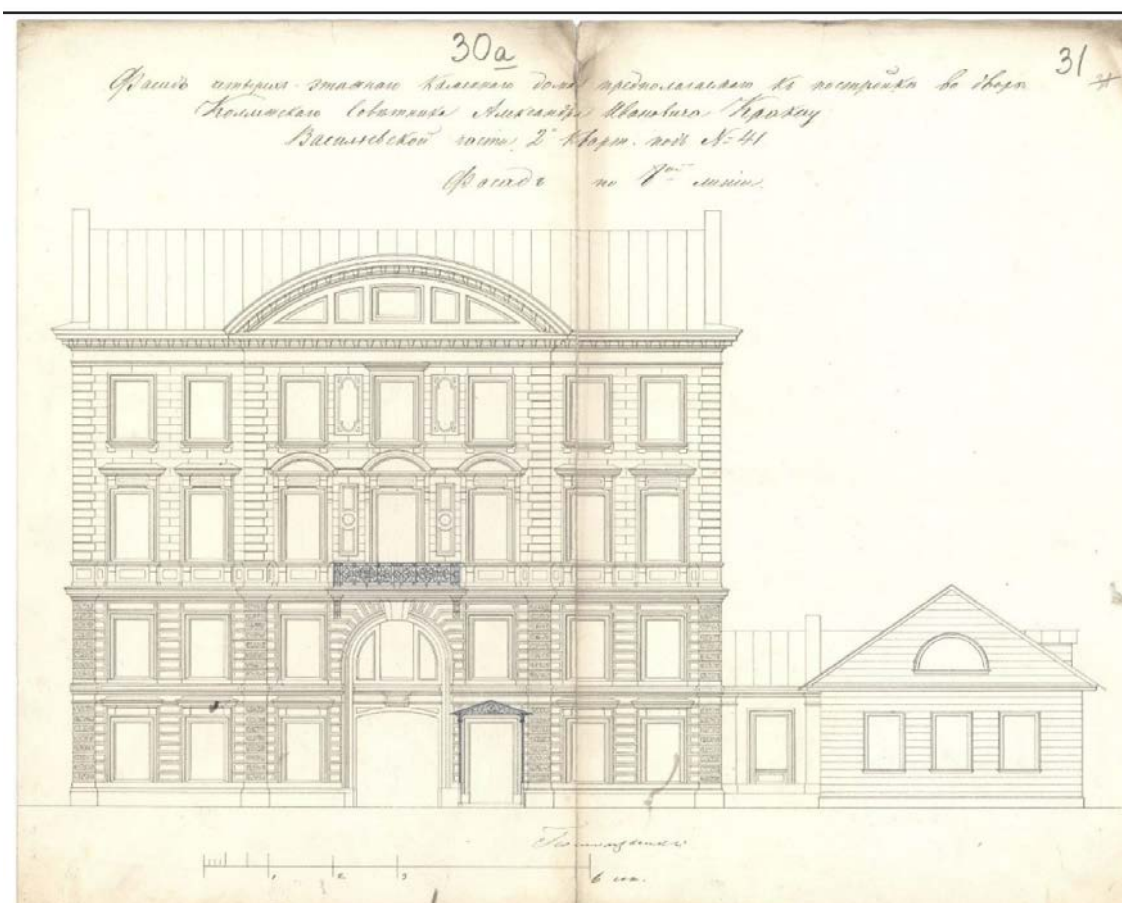 30а
31
Фасадъ четырех-этажнаго каменнаго дома предполагаемаго къ постройки во дворѣ
Совѣтника Александра Ивановича Кракау
Васильевской части, 2 Кварт. подъ № 41
Фасадъ по линіи.
1 2 3 6 саж.